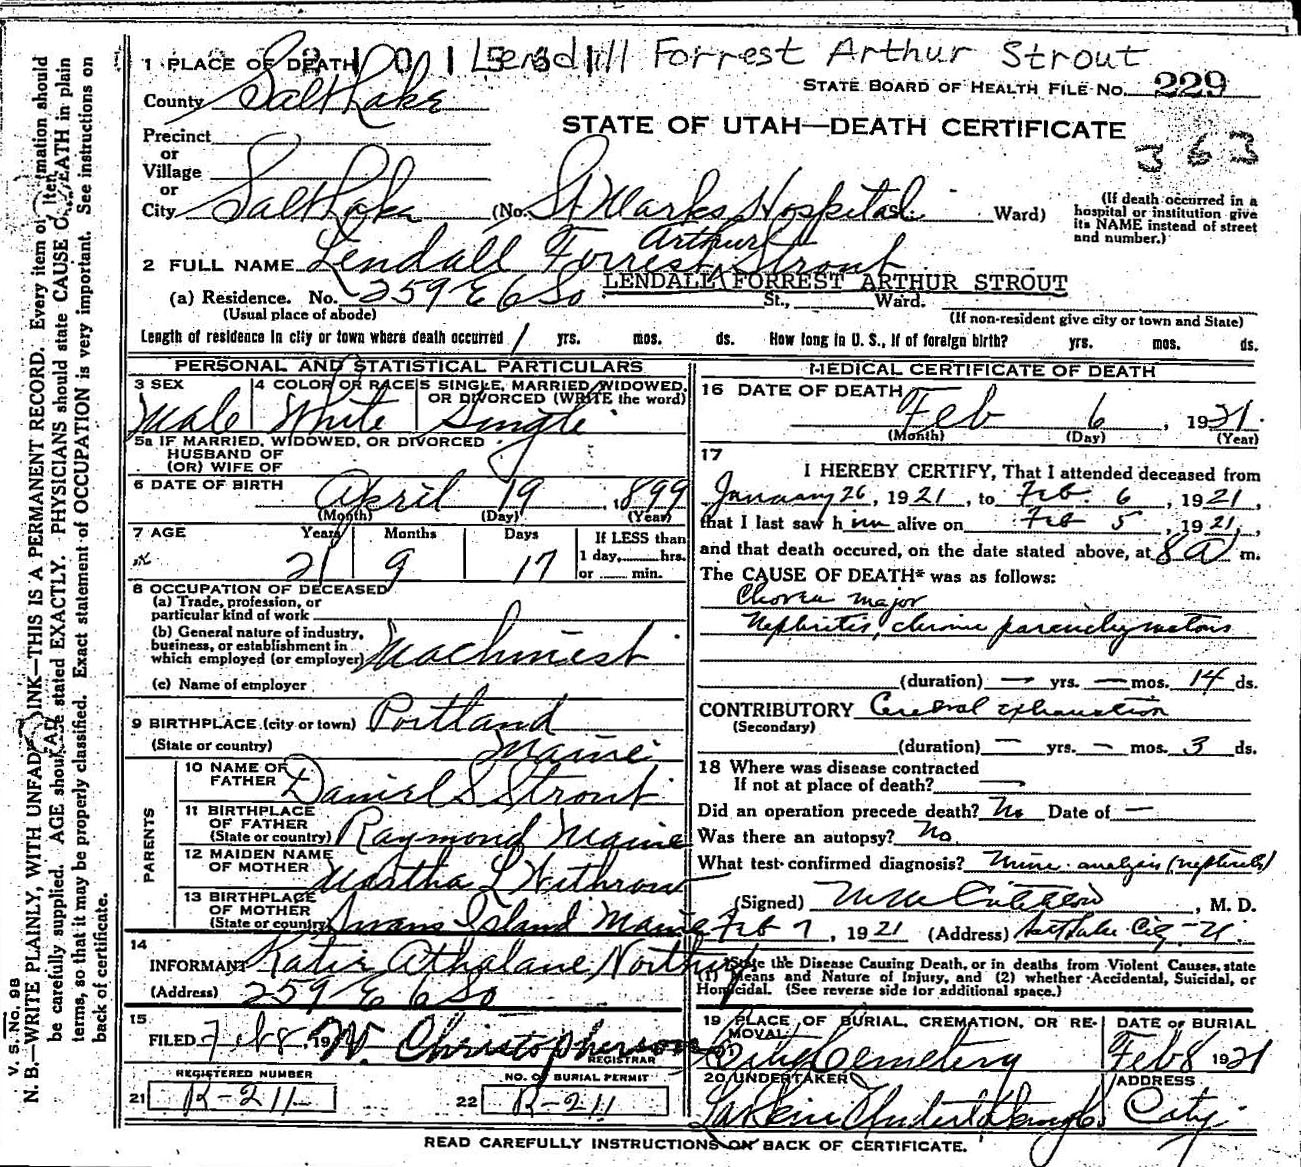 Lendall Forrest Arthur Strout
1 PLACE OF DEATH
STATE BOARD OF HEALTH FILE NO. 229
County Salt Lake
STATE OF UTAH—DEATH CERTIFICATE
363
Precinct
or
Village
or
City Salt Lake (No. St Marks Hospital Ward)
(If death occurred in a
hospital or institution give
its NAME instead of street
and number.)
Arthur
2 FULL NAME Lendall Forrest Strout
LENDALL FORREST ARTHUR STROUT
(a) Residence. No. 259 E 6 So St., Ward.
(Usual place of abode)
(If non-resident give city or town and State)
Length of residence in city or town where death occurred 1 yrs. mos. ds. How long in U. S., if of foreign birth? yrs. mos. ds.
PERSONAL AND STATISTICAL PARTICULARS
3 SEX
Male
4 COLOR OR RACE
White
5 SINGLE, MARRIED, WIDOWED,
OR DIVORCED (WRITE the word)
Single
5a IF MARRIED, WIDOWED, OR DIVORCED
HUSBAND OF
(OR) WIFE OF
6 DATE OF BIRTH
April 19, 1899
(Month) (Day) (Year)
7 AGE Years Months Days If LESS than
1 day, hrs.
or min.
21 9 17
8 OCCUPATION OF DECEASED
(a) Trade, profession, or
particular kind of work
(b) General nature of industry,
business, or establishment in
which employed (or employer) Machinest
(c) Name of employer
9 BIRTHPLACE (city or town) Portland
(State or country) Maine
PARENTS
10 NAME OF
FATHER Daniel S Strout
11 BIRTHPLACE
OF FATHER
(State or country) Raymond Maine
12 MAIDEN NAME
OF MOTHER Martha L Withrow
13 BIRTHPLACE
OF MOTHER
(State or country) Swans Island Maine
14
INFORMANT Katie Athalane
(Address) 259 E 6 So
15
FILED Feb 8, 19 W. Christopherson
REGISTRAR
REGISTERED NUMBER
21 R-211
NO. OF BURIAL PERMIT
22 R-211
MEDICAL CERTIFICATE OF DEATH
16 DATE OF DEATH
Feb 6, 1921
(Month) (Day) (Year)
17
I HEREBY CERTIFY, That I attended deceased from
January 26, 1921, to Feb. 6, 1921,
that I last saw him alive on Feb 5, 1921,
and that death occured, on the date stated above, at 8 a m.
The CAUSE OF DEATH* was as follows:
Chorea major
Nephritis, chronic parenchymatous
(duration) — yrs. — mos. 14 ds.
CONTRIBUTORY Cerebral exhaustion
(Secondary)
(duration) — yrs. — mos. 3 ds.
18 Where was disease contracted
If not at place of death? —
Did an operation precede death? No Date of —
Was there an autopsy? No.
What test confirmed diagnosis? Urine analysis (nephritis)
(Signed) , M. D.
Feb 7, 1921 (Address) Salt Lake City U.
*State the Disease Causing Death, or in deaths from Violent Causes, state
Means and Nature of Injury, and (2) whether Accidental, Suicidal, or
Homicidal. (See reverse side for additional space.)
19 PLACE OF BURIAL, CREMATION, OR RE-
MOVAL
City Cemetery
DATE OF BURIAL
Feb 8 1921
20 UNDERTAKER
ADDRESS
City
READ CAREFULLY INSTRUCTIONS ON BACK OF CERTIFICATE.
V. S. No. 98
N. B.—WRITE PLAINLY, WITH UNFADING INK—THIS IS A PERMANENT RECORD. Every item of information should
be carefully supplied. AGE should be stated EXACTLY. PHYSICIANS should state CAUSE OF DEATH in plain
terms, so that it may be properly classified. Exact statement of OCCUPATION is very important. See instructions on
back of certificate.